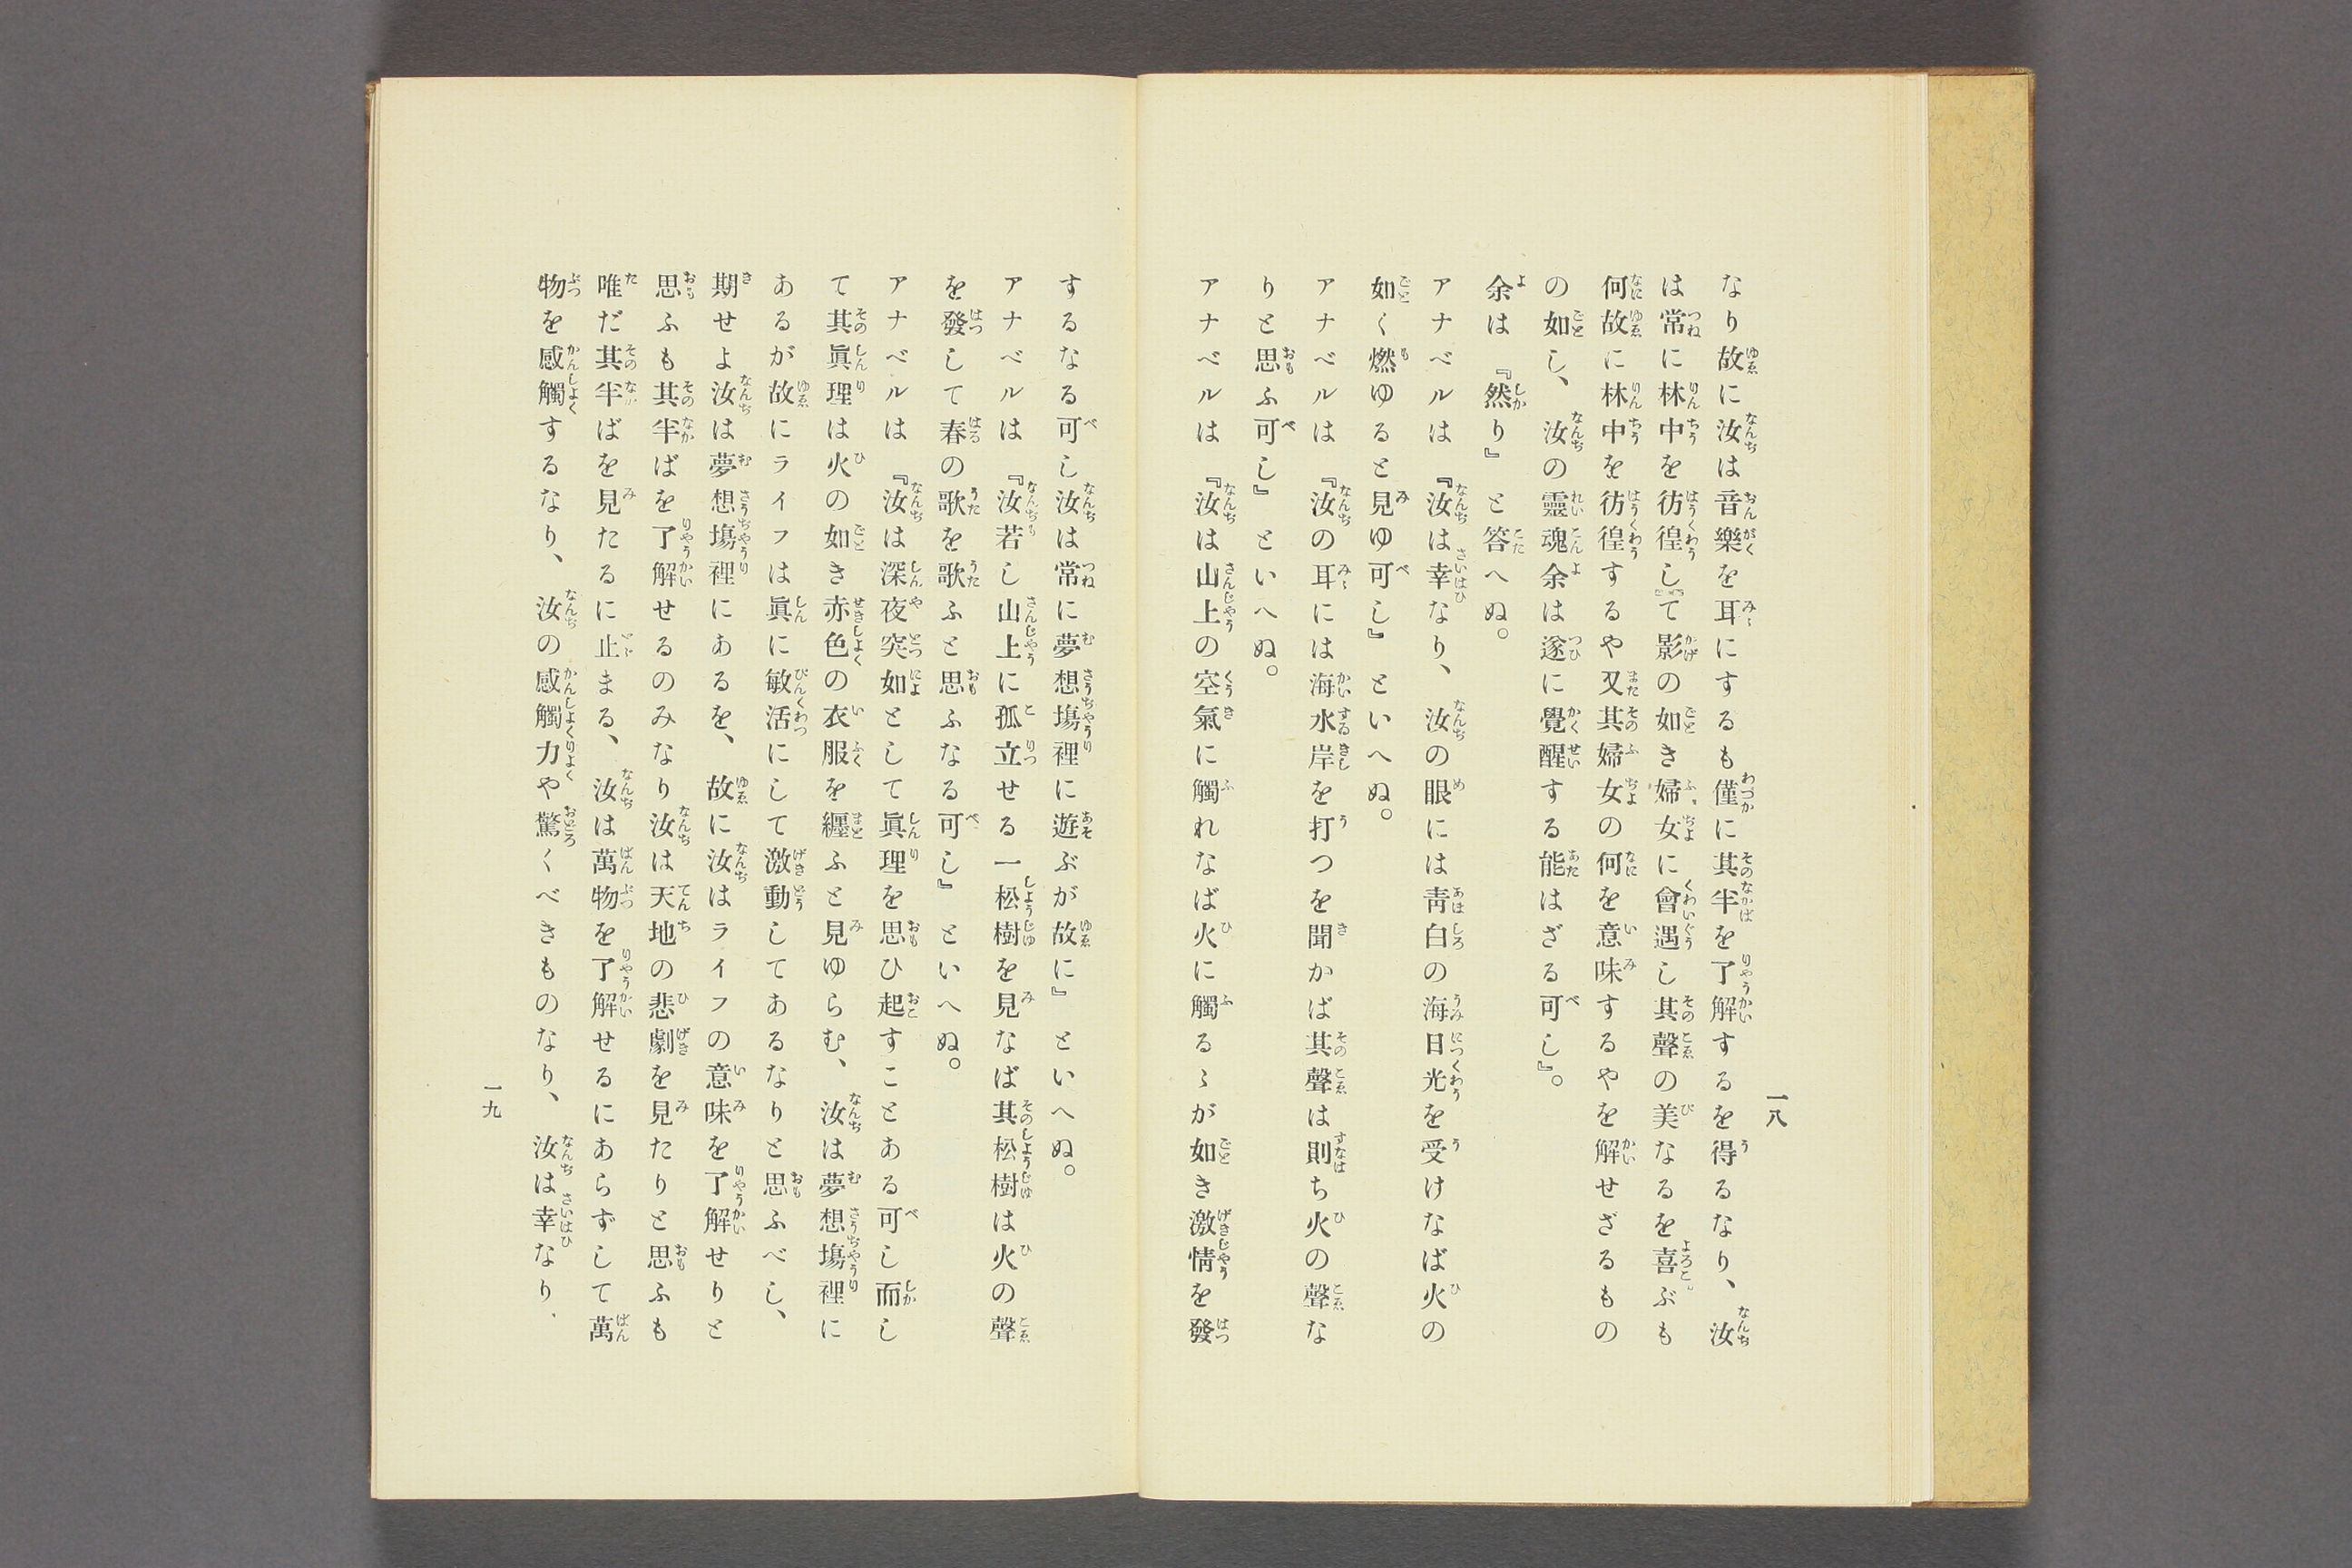 一八
なり故に汝は音樂を耳にするも僅に其半を了解するを得るなり、汝
は常に林中を彷徨して影の如き婦女に會遇し其聲の美なるを喜ぶも
何故に林中を彷徨するや又其婦女の何を意味するやを解せざるもの
の如し、汝の靈魂余は遂に覺醒する能はざる可し』。
余は『然り』と答へぬ。
アナベルは『汝は幸なり、汝の眼には靑白の海日光を受けなば火の
如く燃ゆると見ゆ可し』といへぬ。
アナベルは『汝の耳には海水岸を打つを聞かば其聲は則ち火の聲な
りと思ふ可し』といへぬ。
アナベルは『汝は山上の空氣に觸れなば火に觸るゝが如き激情を發
するなる可し汝は常に夢想塲裡に遊ぶが故に』といへぬ。
アナベルは『汝若し山上に孤立せる一松樹を見なば其松樹は火の聲
を發して春の歌を歌ふと思ふなる可し』といへぬ。
アナベルは『汝は深夜突如として眞理を思ひ起すことある可し而し
て其眞理は火の如き赤色の衣服を纒ふと見ゆらむ、汝は夢想塲裡に
あるが故にライフは眞に敏活にして激動してあるなりと思ふべし、
期せよ汝は夢想塲裡にあるを、故に汝はライフの意味を了解せりと
思ふも其半ばを了解せるのみなり汝は天地の悲劇を見たりと思ふも
唯だ其半ばを見たるに止まる、汝は萬物を了解せるにあらずして萬
物を感觸するなり、汝の感觸力や驚くべきものなり、汝は幸なり、
一九